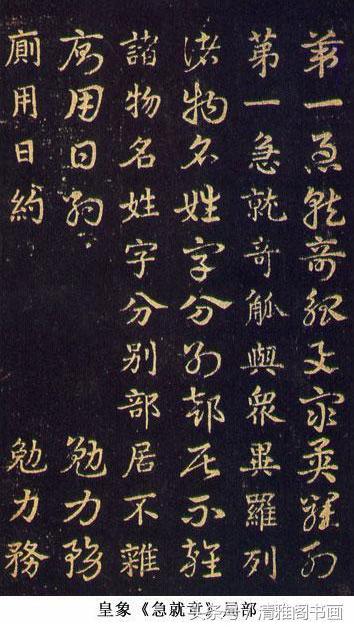 第一急就奇觚與衆異羅列
第一急就奇觚與衆異羅列
諸物名姓字分別部居不雜
諸物名姓字分別部居不雜
廁用日約 勉力務
廁用日約 勉力務
皇象《急就章》局部
清雅阁书画